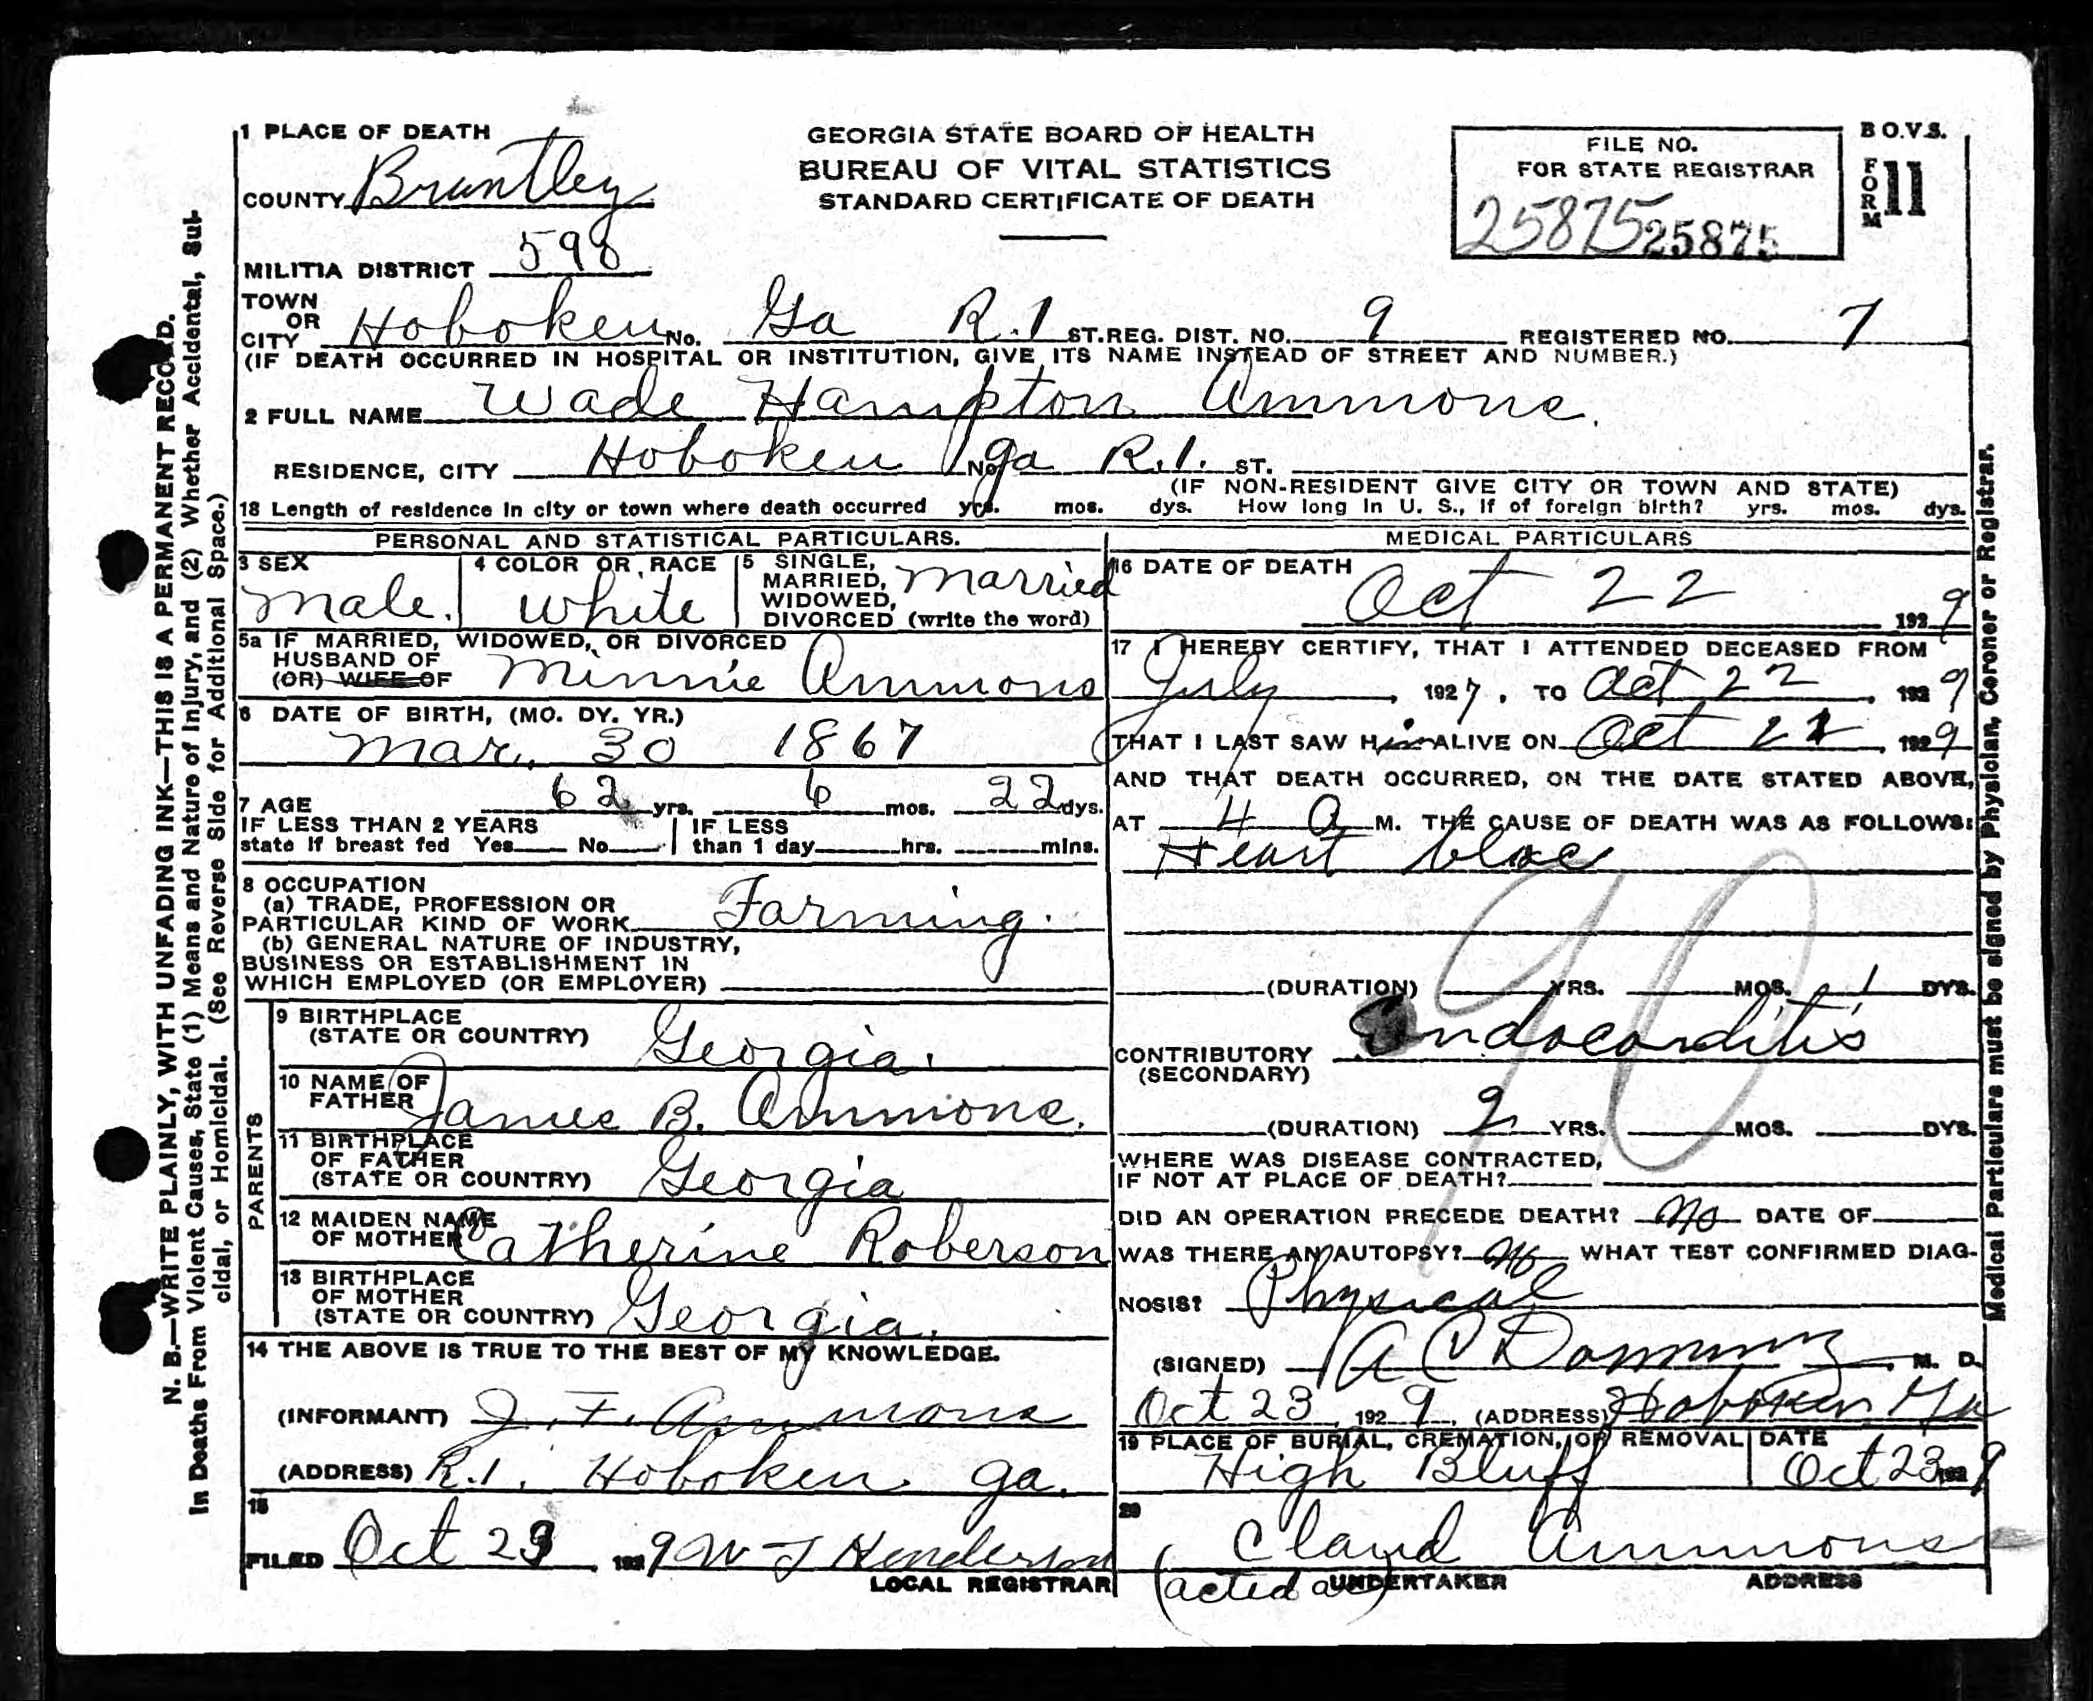 1 PLACE OF DEATH
COUNTY Brantley
MILITIA DISTRICT 590
GEORGIA STATE BOARD OF HEALTH
BUREAU OF VITAL STATISTICS
STANDARD CERTIFICATE OF DEATH
FILE NO.
FOR STATE REGISTRAR
25875 25875
B O.V.S.
FORM 11
TOWN OR CITY Hoboken No. Ga R.1 ST. REG. DIST. NO. 9 REGISTERED NO. 7
(IF DEATH OCCURRED IN HOSPITAL OR INSTITUTION, GIVE ITS NAME INSTEAD OF STREET AND NUMBER.)
2 FULL NAME Wade Hampton Ammons
RESIDENCE, CITY Hoboken No. Ga R.1. ST.
(IF NON-RESIDENT GIVE CITY OR TOWN AND STATE)
18 Length of residence in city or town where death occurred yrs. mos. dys. How long in U. S., if of foreign birth? yrs. mos. dys.
PERSONAL AND STATISTICAL PARTICULARS.
3 SEX
Male.
4 COLOR OR RACE
White
5 SINGLE, MARRIED, WIDOWED, DIVORCED (write the word) Married
5a IF MARRIED, WIDOWED, OR DIVORCED
HUSBAND OF
(OR) WIFE OF Minnie Ammons
6 DATE OF BIRTH, (MO. DY. YR.)
Mar. 30 1867
7 AGE 62 yrs. 6 mos. 22 dys.
IF LESS THAN 2 YEARS
state if breast fed Yes No
IF LESS
than 1 day hrs. mins.
8 OCCUPATION
(a) TRADE, PROFESSION OR
PARTICULAR KIND OF WORK Farming.
(b) GENERAL NATURE OF INDUSTRY,
BUSINESS OR ESTABLISHMENT IN
WHICH EMPLOYED (OR EMPLOYER)
PARENTS
9 BIRTHPLACE
(STATE OR COUNTRY) Georgia.
10 NAME OF
FATHER James B. Ammons.
11 BIRTHPLACE
OF FATHER
(STATE OR COUNTRY) Georgia
12 MAIDEN NAME
OF MOTHER Catherine Roberson
13 BIRTHPLACE
OF MOTHER
(STATE OR COUNTRY) Georgia.
14 THE ABOVE IS TRUE TO THE BEST OF MY KNOWLEDGE.
(INFORMANT) J. F. Ammons
(ADDRESS) R.1. Hoboken Ga.
15
FILED Oct 23 1929 W J Henderson
LOCAL REGISTRAR
MEDICAL PARTICULARS
16 DATE OF DEATH
Oct 22 1929
17 I HEREBY CERTIFY, THAT I ATTENDED DECEASED FROM
July, 1927, TO Oct 22, 1929
THAT I LAST SAW Him ALIVE ON Oct 21, 1929
AND THAT DEATH OCCURRED, ON THE DATE STATED ABOVE,
AT 4 A M. THE CAUSE OF DEATH WAS AS FOLLOWS:
Heart bloc
90
(DURATION) YRS. MOS. 1 DYS.
CONTRIBUTORY Endocarditis
(SECONDARY)
(DURATION) 2 YRS. MOS. DYS.
WHERE WAS DISEASE CONTRACTED,
IF NOT AT PLACE OF DEATH?
DID AN OPERATION PRECEDE DEATH? No DATE OF
WAS THERE AN AUTOPSY? No WHAT TEST CONFIRMED DIAG-
NOSIS? Physical
(SIGNED) A C M. D.
Oct 23, 1929, (ADDRESS) Hoboken, Ga
19 PLACE OF BURIAL, CREMATION, OR REMOVAL DATE
High Bluff Oct 23 1929
20
Claud Ammons
(acted as) UNDERTAKER ADDRESS
N. B.—WRITE PLAINLY, WITH UNFADING INK—THIS IS A PERMANENT RECORD.
In Deaths From Violent Causes, State (1) Means and Nature of Injury, and (2) Whether Accidental, Sui-
cidal, or Homicidal. (See Reverse Side for Additional Space.)
Medical Particulars must be signed by Physician, Coroner or Registrar.